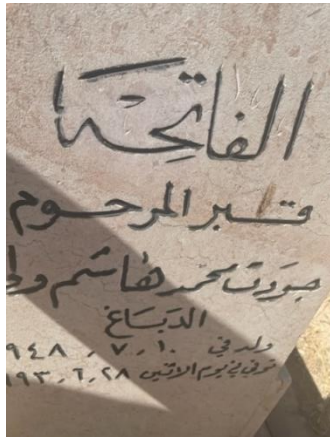 الفاتحة
قبر المرحوم
جودت محمد هاشم
الدباغ
ولد في ١٠ ٧ ٩٤٨
توفي في يوم الاثنين ٢٨ ٦ ٩٣